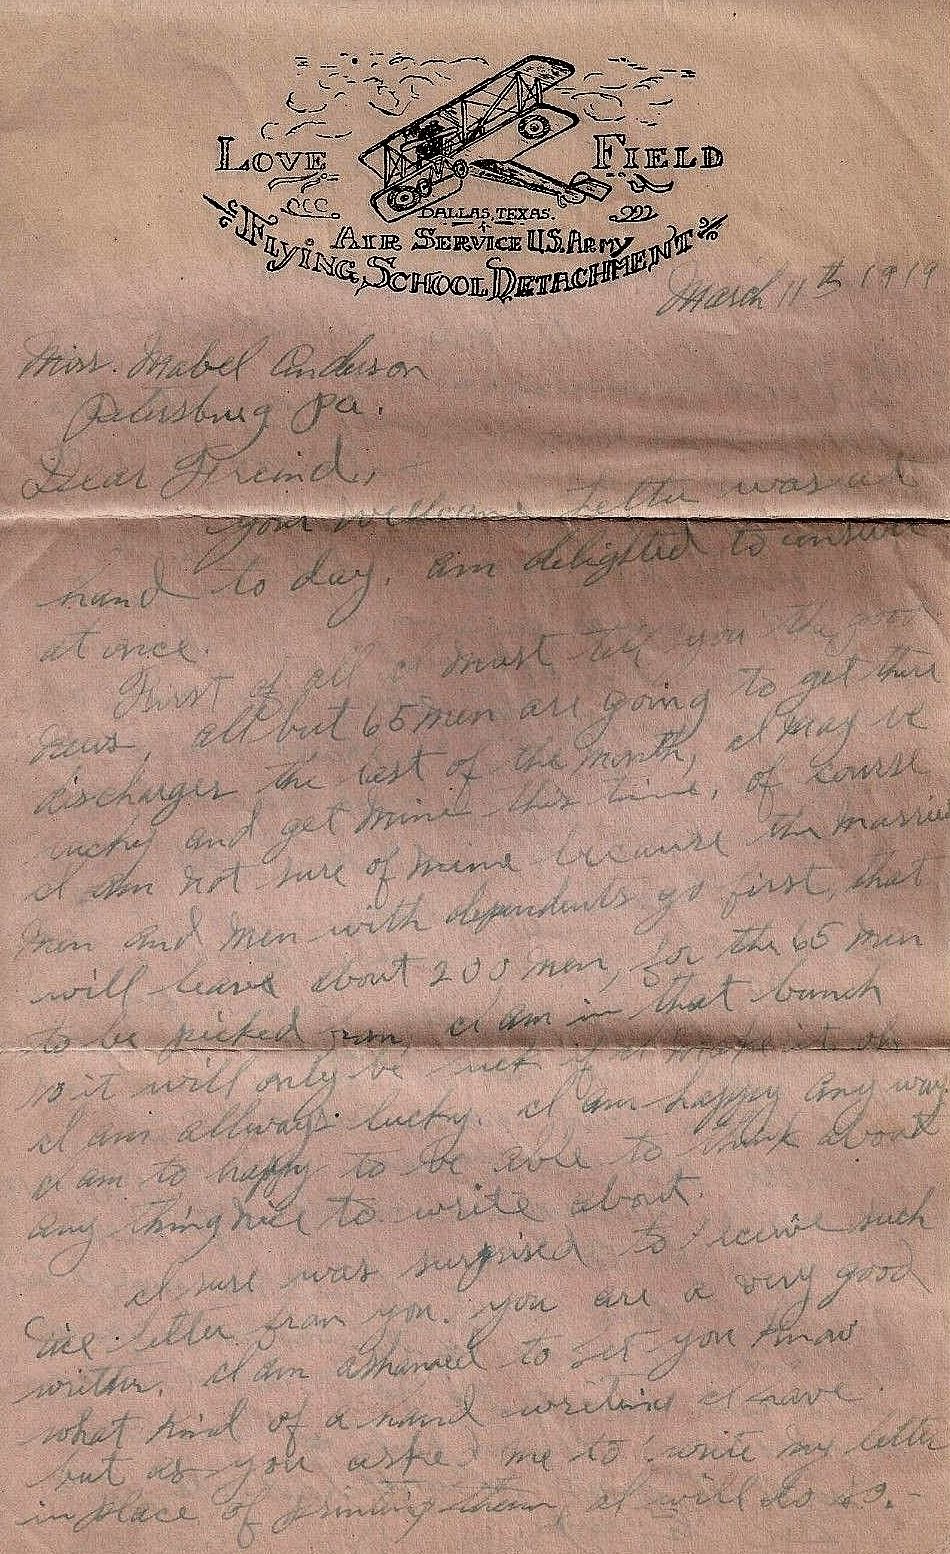 LOVE FIELD
DALLAS, TEXAS.
AIR SERVICE U.S. ARMY
FLYING SCHOOL DETACHMENT
March 11th 1919
Miss. Mabel Anderson
Petersburg Pa.
Dear Freind,
your wellcome letter was at
hand to day. am delighted to
at once.
First of all I must tell you the good
news, all but 65 men are going to get there
discharges the last of the month, I may be
lucky and get mine this time, of course
I am not sure of mine because the married
men and men with dependents go first, that
will leave about 200 men, for the 65 men
to be picked from, I am in that bunch
so it will only be luck if I make it oh
I am allways lucky. I am happy any way
I am to happy to be able to think about
any thing nice to write about.
I sure was surprised to receive such
nice letter from you. you are a very good
writer. I am ashamed to let you know
what kind of a hand writing I have
but as you aske me to write my letter
in place of printing them, I will do so.-